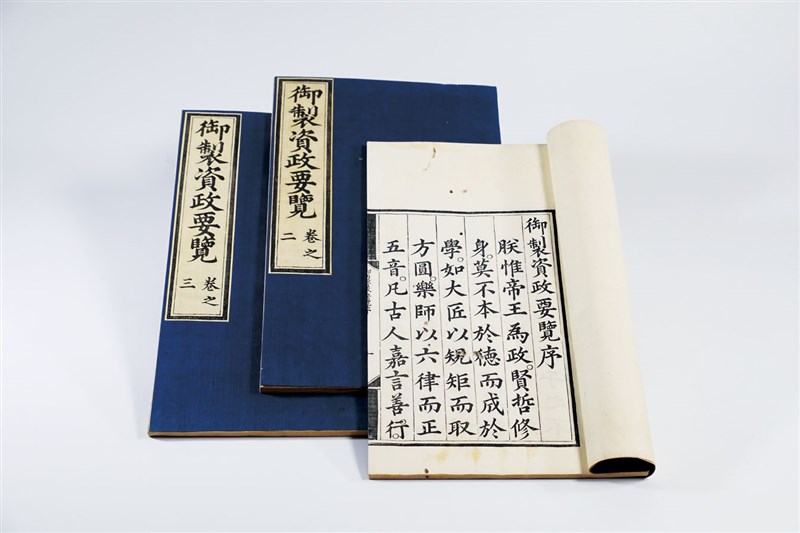 御製資政要覽 卷之三
御製資政要覽 卷之二
御製資政要覽序
朕惟帝王為政。賢哲修
身。莫不本於德而成於
學。如大匠以規矩而取
方圓。樂師以六律而正
五音。凡古人嘉言善行。